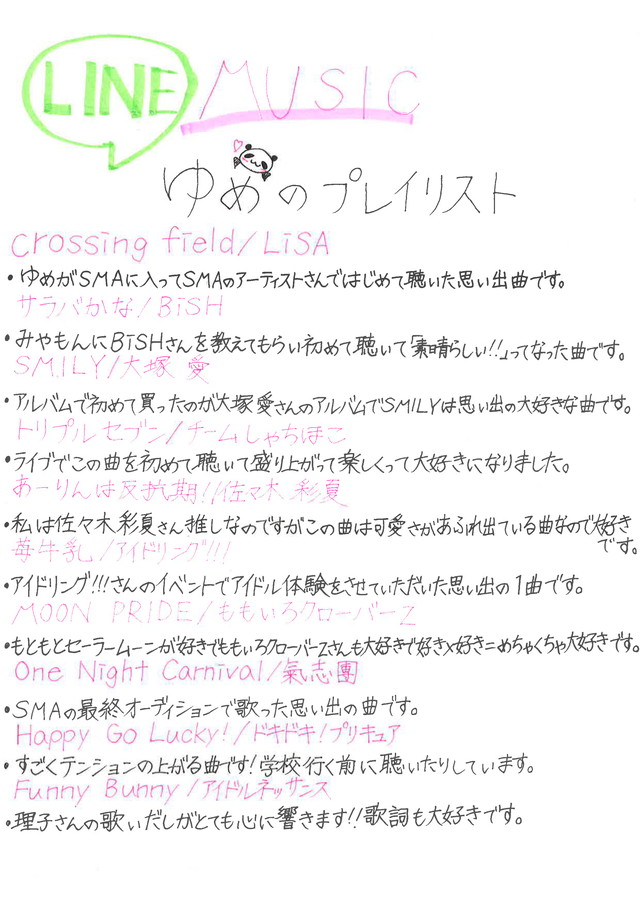 LINE MUSIC
ゆめのプレイリスト
crossing field/LiSA
・ゆめがSMAに入ってSMAのアーティストさんではじめて聴いた思い出曲です。
サラバかな/BiSH
・みやもんにBiSHさんを教えてもらい初めて聴いて「素晴らしい!!」ってなった曲です。
SMILY/大塚 愛
・アルバムで初めて買ったのが大塚愛さんのアルバムでSMILYは思い出の大好きな曲です。
トリプルセブン/チームしゃちほこ
・ライブでこの曲を初めて聴いて盛り上がって楽しくって大好きになりました。
あーりんは反抗期!/佐々木 彩夏
・私は佐々木彩夏さん推しなのですがこの曲は可愛さがあふれ出ている曲なので大好き
です。
苺牛乳/アイドリング!!!
・アイドリング!!!さんのイベントでアイドル体験をさせていただいた思い出の1曲です。
MOON PRIDE/ももいろクローバーZ
・もともとセーラームーンが好きでももいろクローバーZさんも大好きで好き×好き=めちゃくちゃ大好きです。
One Night Carnival/氣志團
・SMAの最終オーディションで歌った思い出の曲です。
Happy Go Lucky!/ドキドキ!プリキュア
・すごくテンションの上がる曲です!学校行く前に聴いたりしています。
Funny Bunny/アイドルネッサンス
・理子さんの歌いだしがとても心に響きます!!歌詞も大好きです。